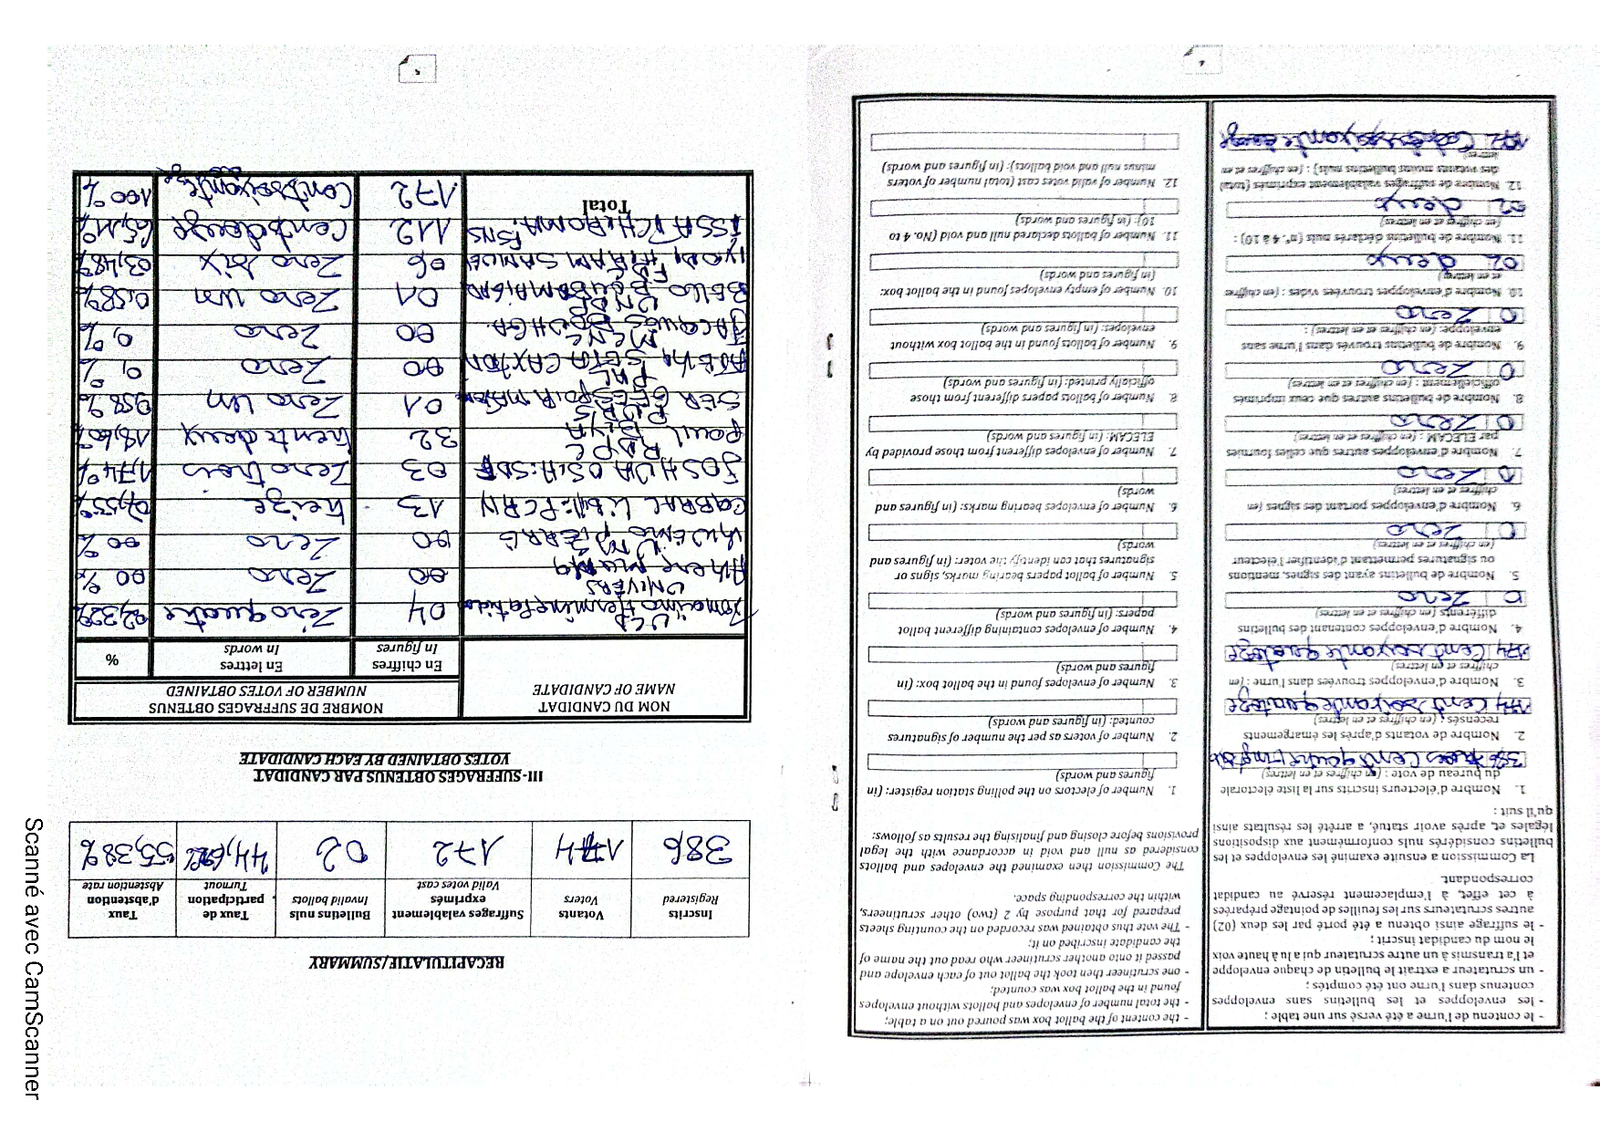 4
- le contenu de l'urne a été versé sur une table ;
- les enveloppes et les bulletins sans enveloppes contenus dans l'urne ont été comptés ;
- un scrutateur a extrait le bulletin de chaque enveloppe et l'a transmis à un autre scrutateur qui a lu à haute voix le nom du candidat inscrit ;
- le suffrage ainsi obtenu a été porté par les deux (02) autres scrutateurs sur les feuilles de pointage préparées à cet effet, à l'emplacement réservé au candidat correspondant.
La Commission a ensuite examiné les enveloppes et les bulletins considérés nuls conformément aux dispositions légales et, après avoir statué, a arrêté les résultats ainsi qu'il suit :
1. Nombre d'électeurs inscrits sur la liste électorale du bureau de vote : (en chiffres et en lettres)
386
2. Nombre de votants d'après les émargements recensés : (en chiffres et en lettres)
174 Cent soixante quatoze
3. Nombre d'enveloppes trouvées dans l'urne : (en chiffres et en lettres)
174 Cent soixante quatoze
4. Nombre d'enveloppes contenant des bulletins différents (en chiffres et en lettres)
0 Zero
5. Nombre de bulletins ayant des signes, mentions ou signatures permettant d'identifier l'électeur (en chiffres et en lettres)
0 Zero
6. Nombre d'enveloppes portant des signes (en chiffres et en lettres)
0 Zero
7. Nombre d'enveloppes autres que celles fournies par ELECAM : (en chiffres et en lettres)
0 Zero
8. Nombre de bulletins autres que ceux imprimés officiellement : (en chiffres et en lettres)
0 Zero
9. Nombre de bulletins trouvés dans l'urne sans enveloppe: (en chiffres et en lettres) :
0 Zero
10. Nombre d'enveloppes trouvées vides : (en chiffres et en lettres)
02 deux
11. Nombre de bulletins déclarés nuls (n°. 4 à 10) : (en chiffres et en lettres)
02 deux
12. Nombre de suffrages valablement exprimés (total des votants moins bulletins nuls) : (en chiffres et en lettres)
172
- the content of the ballot box was poured out on a table;
- the total number of envelopes and ballots without envelopes found in the ballot box was counted;
- one scrutineer then took the ballot out of each envelope and passed it onto another scrutineer who read out the name of the candidate inscribed on it;
- The vote thus obtained was recorded on the counting sheets prepared for that purpose by 2 (two) other scrutineers, within the corresponding space.
The Commission then examined the envelopes and ballots considered as null and void in accordance with the legal provisions before closing and finalising the results as follows:
1. Number of electors on the polling station register: (in figures and words)
2. Number of voters as per the number of signatures counted: (in figures and words)
3. Number of envelopes found in the ballot box: (in figures and words)
4. Number of envelopes containing different ballot papers: (in figures and words)
5. Number of ballot papers bearing marks, signs or signatures that content identify the voter: (in figures and words)
6. Number of envelopes bearing marks: (in figures and words)
7. Number of envelopes different from those provided by ELECAM: (in figures and words)
8. Number of ballots papers different from those officially printed: (in figures and words)
9. Number of ballots found in the ballot box without envelopes: (in figures and words)
10. Number of empty envelopes found in the ballot box: (in figures and words)
11. Number of ballots declared null and void (No. 4 to 10): (in figures and words)
12. Number of valid votes cast (total number of voters minus null and void ballots): (in figures and words)
5
RECAPITULATIF/SUMMARY
Inscrits Registered | Votants Voters | Suffrages valablement exprimés Valid votes cast | Bulletins nuls Invalid ballots | Taux de participation Turnout | Taux d'abstention Abstention rate
386 | 174 | 172 | 02 | 44,62% | 55,38%
III- SUFFRAGES OBTENUS PAR CANDIDAT
VOTES OBTAINED BY EACH CANDIDATE
NOM DU CANDIDAT NAME OF CANDIDATE | NOMBRE DE SUFFRAGES OBTENUS NUMBER OF VOTES OBTAINED
En chiffres In figures | En lettres In words | %
Tomaïno Hermine Patricia UCP | 04 | Zero quatre | 02,32%
UNIVERS | 00 | Zero | 00 %
Kwemo Pierre UMS | 00 | Zero | 00 %
CABRAL LIBII: PCRN | 13 | treize | 07,55%
JOSHUA OSIH: SDF | 03 | Zero trois | 1,74%
PAUL BIYA RDPC | 32 | trente deux | 18,60%
SERGE ESPOIR MATOMBA PURS | 01 | Zero un | 0,58%
ATEKI SETA CAXTON PAL | 00 | Zero | 0,%
JACQUES BOUHGA MCNC | 00 | Zero | 0,%
BELLO BOUBA MAIGARI UNDP | 01 | Zero un | 0,58%
IYODI HIRAM SAMUEL FDC | 06 | Zero six | 03,48%
ISSA TCHIROMA: FSNC | 112 | Cent douze | 65,11%
Total | 172 | Cent soixante douze | 100 %
Scanné avec CamScanner